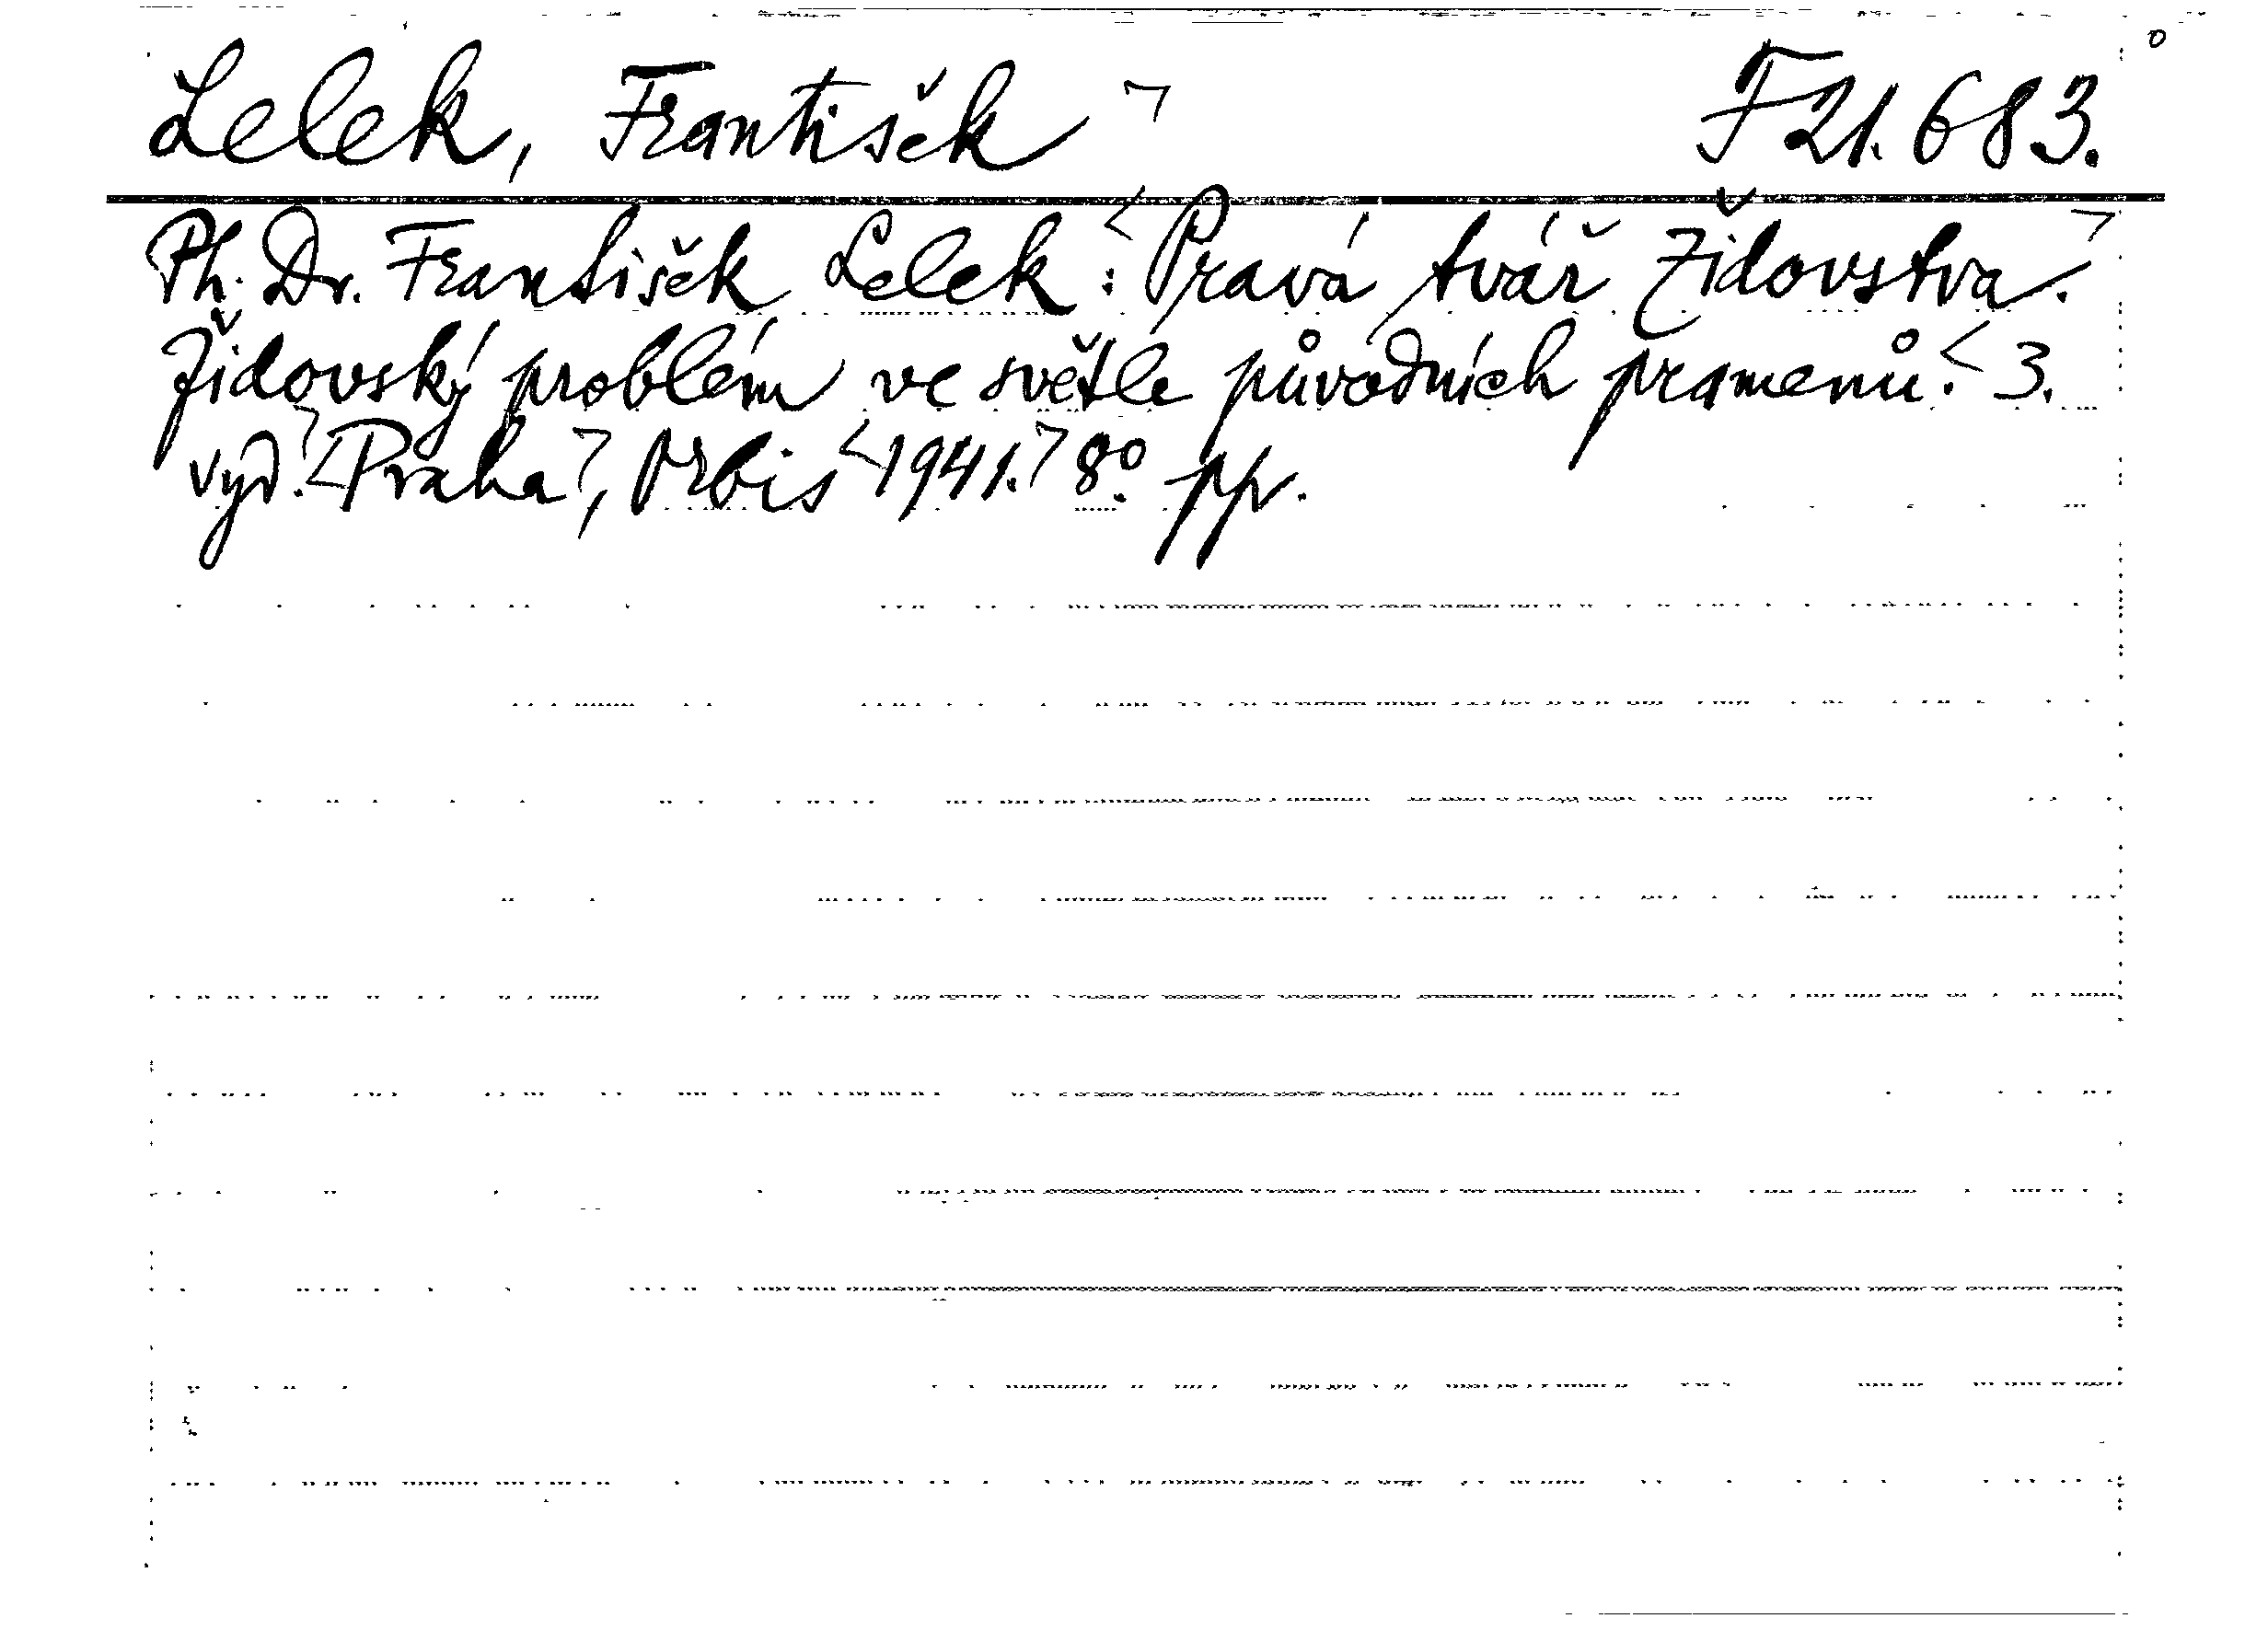 Lelek, František F 21.683.
Ph. Dr. František Lelek: Pravá tvář Židovstva.
Židovský problém ve světle původních pramenů. 3.
vyd. Praha, Orbis 1941. 8° pp.